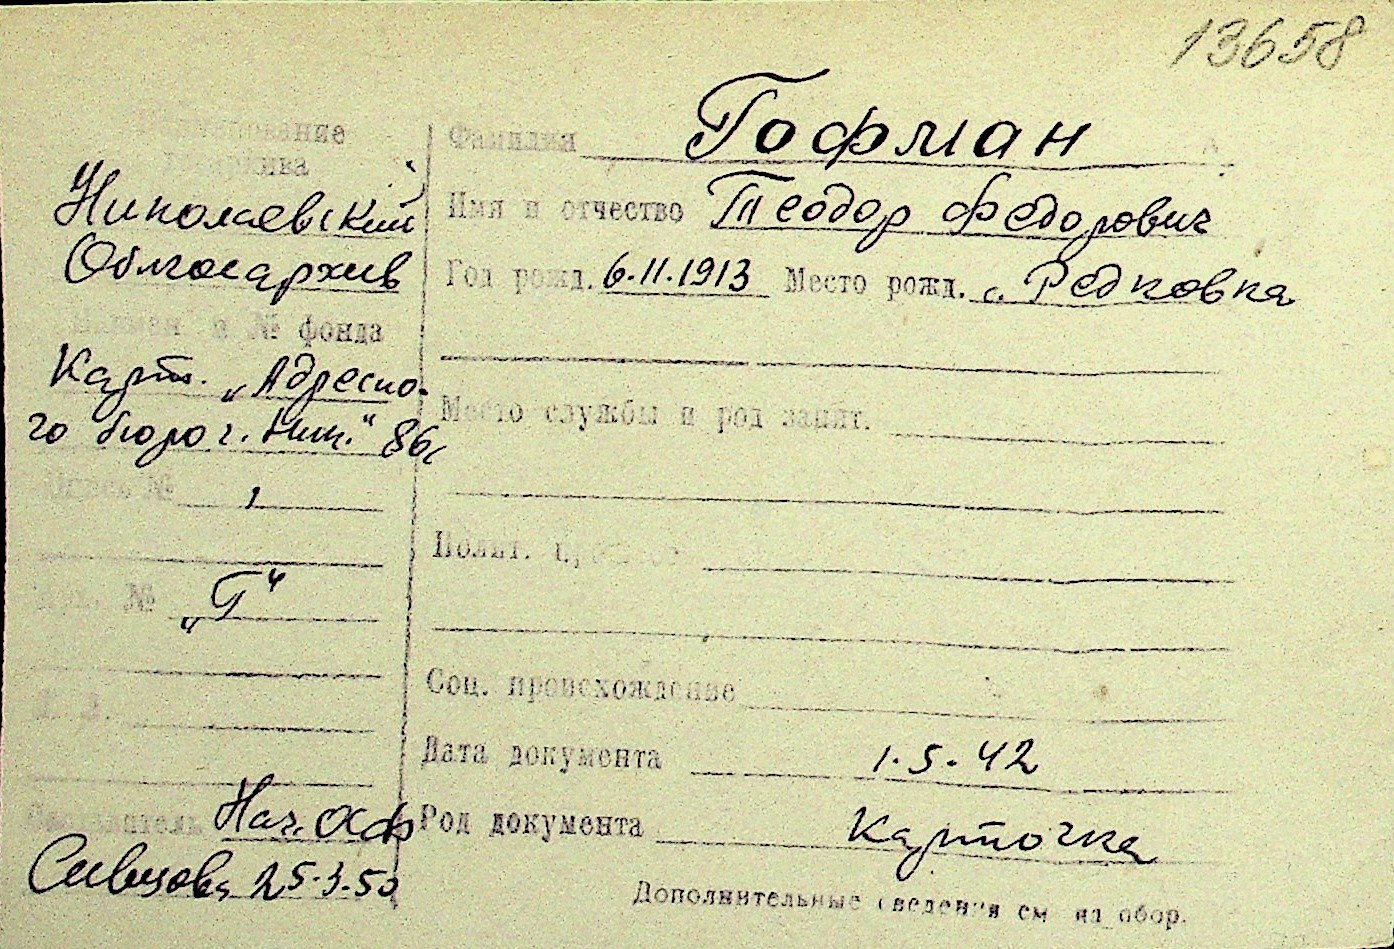 13658
Наименование
архива
Николаевский
Облгосархив
и № фонда
Карт. „Адресно-
го бюро г. Ник." 86с
Опись № 1
№ „Г"
Нач. ОСФ
Сивцова 25.3.50
Фамилия Гофман
Имя и отчество Теодор Федорович
Год рожд. 6.11.1913 Место рожд. с. Редковка
Место службы и род занят.
Полит.
Соц. происхождение
Дата документа 1.5.42
Род документа карточка
Дополнительные сведения см на обор.